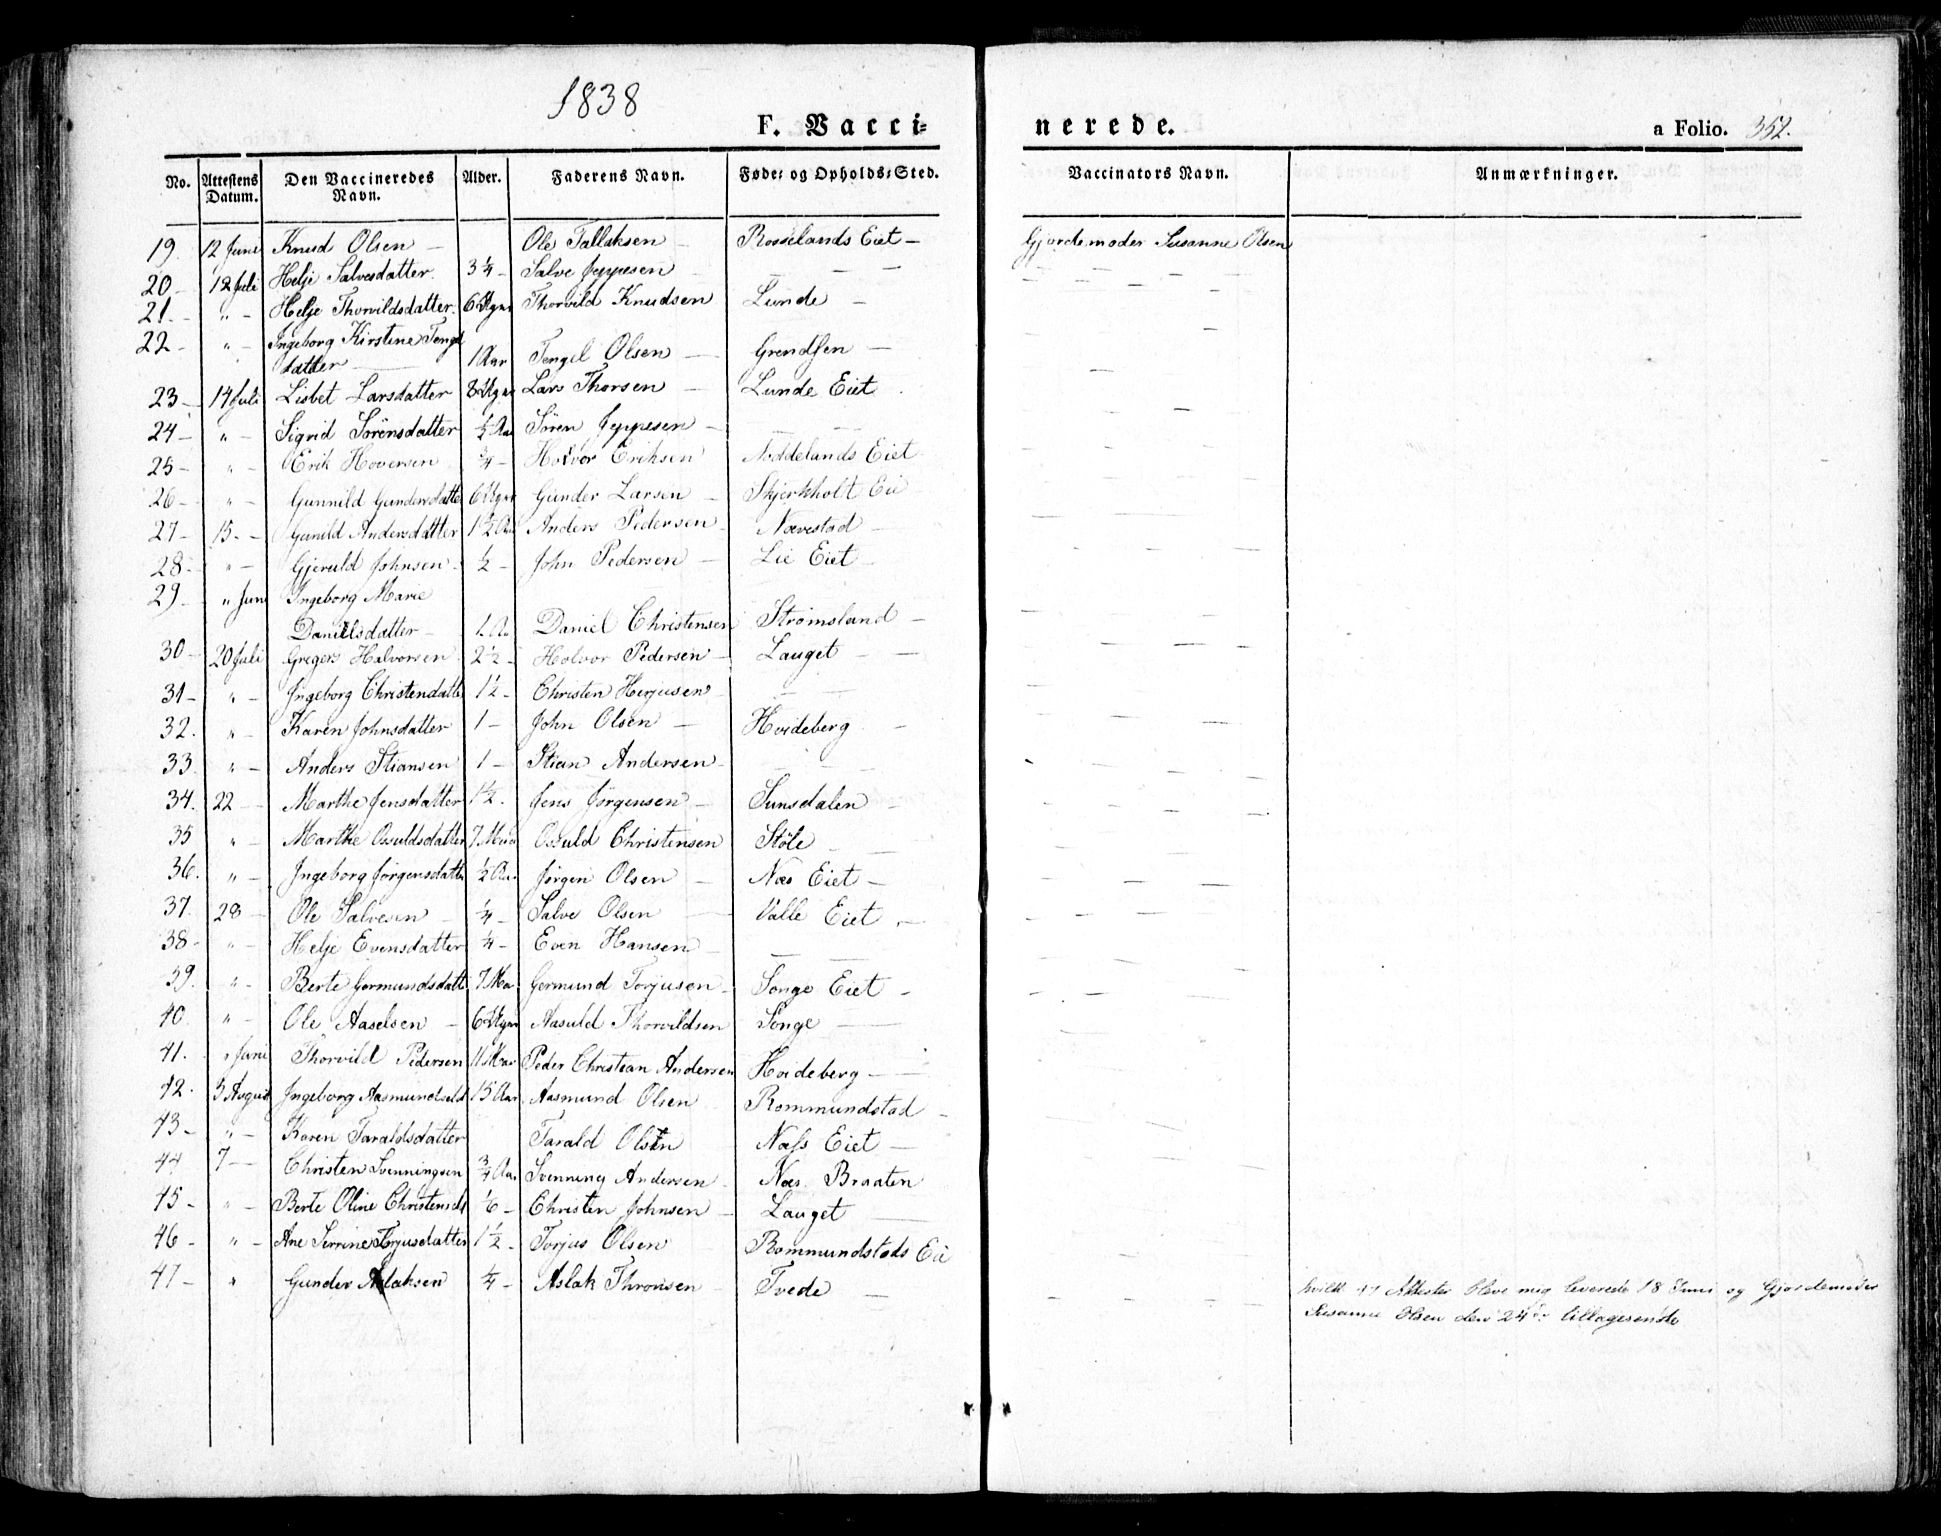 1838
F. Vacci=
nerede.
a Folio. 352.
No. Attestens Datum. Den Vaccineredes Navn. Alder. Faderens Navn. Føde= og Opholds=Sted. Vaccinators Navn. Anmærkninger.
19. 12 Juni Knud Olsen — Ole Tallaksen — Rosselands Eiet — Gjordemoder Susanne Olsen
20 — 12 Juli Helje Salvesdatter 3 1/4 — Salve Jeppesen — — —
21. — " — Helje Thorvildsdatter. 6 Uger Thorvild Knudsen Lunde —
22 — " — Ingeborg Kirstine Tengel
datter — 1 Aar Tengel Olsen — Grendsen —
23 — 14 Juli Lisbet Larsdatter 8 Uger Lars Thorsen — Lunde Eiet
24 — " — Sigrid Sørensdatter 1/2 Aar Søren Jeppesen — — —
25 — " — Erik Hoversen 3/4 — Holvor Eriksen Noddelands Eiet
26 — " — Gunnild Gundersdatter 6 Uger Gunder Larsen — Skjerkholt Ei
27 — 15 — Gunild Andersdatter 1 1/2 Aar Anders Pedersen — Nævestad —
28 — " — Gjeruld Johnsen — 1/2 — John Pedersen — Lie Eiet —
29. " Juni Ingeborg Marie
Danielsdatter — 1 Aar Daniel Christensen Strømsland —
30 — 20 Juli Gregers Halvorsen 2 1/2 — Holvor Pedersen — Lauget — —
31 — " — Ingeborg Christendatter 1 1/2 — Christen Herjusen — — —
32. " — Karen Johnsdatter 1 — John Olsen — Hvideberg —
33 " — Anders Stiansen 1 — Stian Andersen — — —
34. 22 — Marthe Jensdatter 1 1/2. Jens Jørgensen — Sunsdalen —
35 " — Marthe Osuldsdatter 7 Maa Osuld Christensen Støle — —
36. " — Ingeborg Jørgensdatter 1/2 Aar Jørgen Olsen — Næs Eiet —
37. 28 — Ole Salvesen — 1/4 — Salve Olsen — Valle Eiet —
38 — " — Helje Evensdatter 1/4 — Even Hansen — — —
39. " — Berte Germundsdatt 7 Maa Germund Torjusen — Songe Eiet —
40 " — Ole Aaselsen — 6 Uger Aasuld Thorvildsen Songe —
41. " Juni Thorvild Pedersen 11 Maa Peder Christian Andersen Hvideberg —
42. 3 August Ingeborg Aasmundsdd 15 Aar Aasmund Olsen Rommundstad —
43 — " — Karen Taraldsdatter Tarald Olsen Næss Eiet —
44 7 — Christen Svenningsen 3/4 Aar Svenning Andersen — Næs Braaten
45 — " — Berte Oline Christensd 1/6 — Christen Johnsen — Lauget —
46 — " — Ane Serrine Torjusdatter 1 1/2 — Torjus Olsen Rommundstads Ei
47 — " Gunder Aslaksen 1/4 — Aslak Thronsen — Tvede —
hvilke 47 Attester bleve mig leverede 18 Juni og Gjordemoder
Susanne Olsen den 24de tilbagesendte